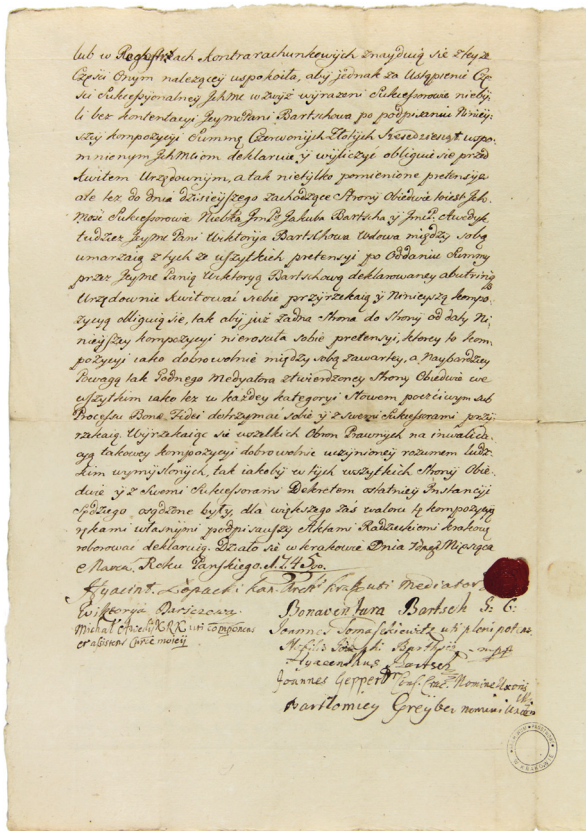 lub w Regestrach Kontrarachunkowych znayduią się z tey że
Części Onym należącey uspokoiła, aby iednak za Ustąpienie Czę-
ści Sukcessyonalney JchMć w zwyż wyrażeni Sukcessorowie nieby-
li bez kontentacyi Jeymć Pani Bartschowa po podpisaniu Ninieÿ-
szey kompozycyi Summę Czerwonych Złotych Sześćdziesiąt wspo-
mnionym JchMciom deklaruie ÿ wyliczyć obliguie się przed
kwitem Urzędownym, a tak nietylko pomienione pretensye
ale tez do dnia dzisieÿszego zachodzące Strony Obiedwie to iest Jch
Mość Sukcessorowie Niebká Jmści Jakuba Bartscha ÿ
tudziez Jeÿmć Pani Wiktorÿa Bartschowa Wdowa między sobą
umarzaią z tych ze wszÿtkich pretensyi po Oddaniu Summy
przez Jeymć Panią Wiktoryą Bartschową deklarowaney
Urzędownie kwitować siebie przÿrzekaią ÿ Ninieyszą kompo-
zycyą obliguią się, tak aby już żadna Strona do Strony od daty Ni-
nieÿszey kompozycyi nierosciła sobie pretensyi, ktorey to kom-
pozycyi iako dobrowolnie między sobą zawartey, a Naybardziey
Powagą tak Godnego Medyatora ztwierdzoney Strony Obiedwie we
wszytkim iako tez w każdey kategoryi Słowem poczciwym sub
Processu Bonæ Fidei dotrzymać sobie ÿ z swemi Sukcessorami przÿ-
rzekaią. Wyrzekaiąc się wszelkich Obron Prawnych na inwalida-
cyą takowey kompozycyi dobrowolnie uczynioney rozumem ludz-
kim wymyślonych, tak iakoby w tych wszytkich Strony Obie-
dwie ÿ z Swemi Sukcessorami Dekretem ostatniey Instancyi
Spądzego osądzone były, dla większego zaś waloru tę kompozycyą
rękami własnymi podpisawszy Aktami Radzieckiemi krakow:
roborować deklaruią. Działo się w krakowie Dnia Miesiąca
Marca, Roku Pańskiego 1745o.
Hyacint. Łopacki Kan. Arch. Krak. uti Mediator
Wiktorya Barszowa
Bonaventura Bartsch
Michał
Joannes Tomaszkiewitz uti pleni potens
et assistens
Bartsch
Hyacenthus Bartsch
Joannes Geppert Nomine Uxoris
Bartłomiey Greyber nomine Uxoris